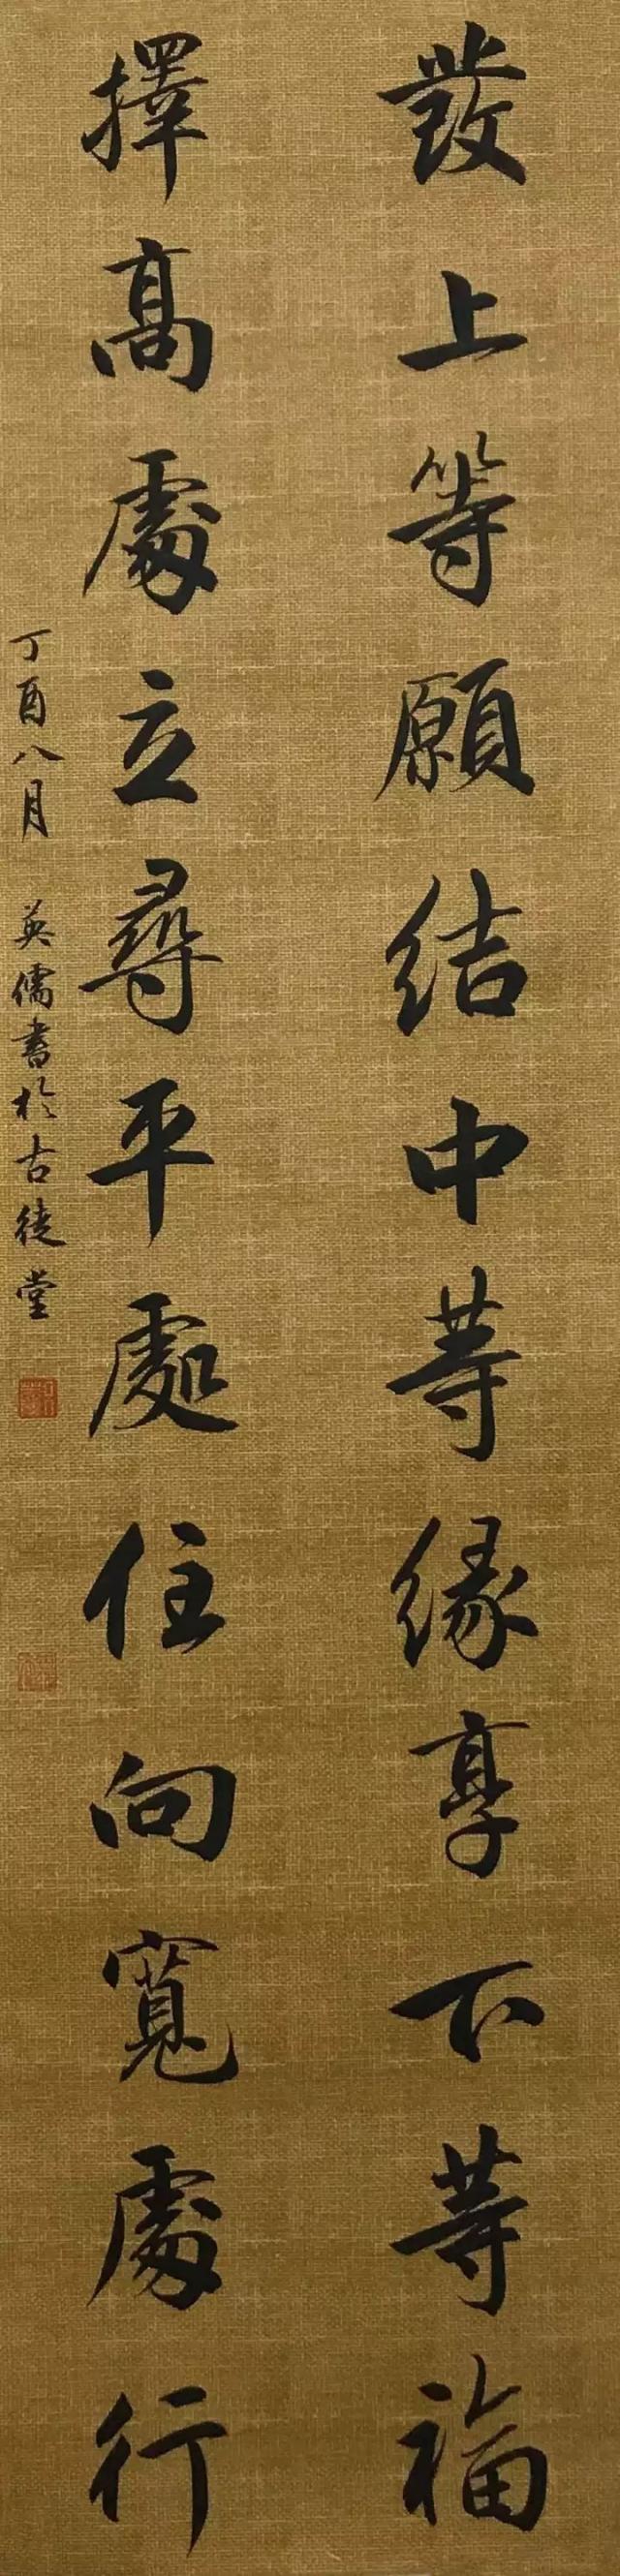 發上等願結中等緣享下等福
擇高處立尋平處住向寬處行
丁酉八月 英儒書於古徒堂